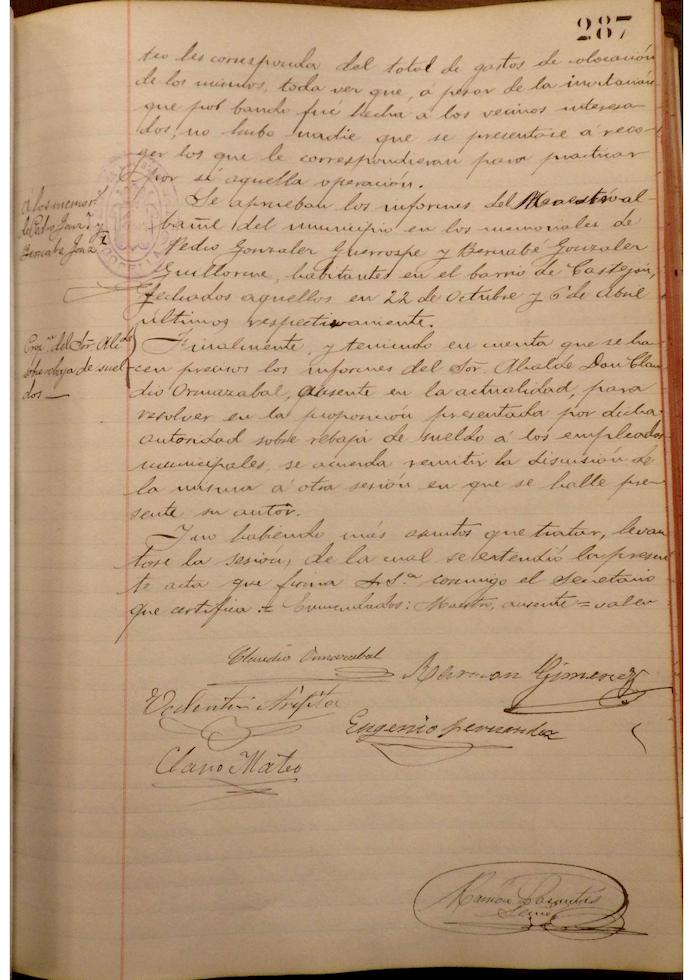 287
tro les corresponda del total de gastos de colocación
de los mismos, toda vez que, a pesar de la invitación
que por bando fué hecha á los vecinos interesa-
dos, no hubo nadie que se presentase á reco-
ger los que le correspondieran para practicar
por sí aquella operación.
á los memor.s
de Pedro Gonz.z y
Bernabe Gonz.z
Se aprueban los informes del Maestro al-
bañil del municipio en los memoriales de
Pedro Gonzalez Guerrospe y Bernabé Gonzalez
Guillorme, habitantes en el barrio de Castejón,
fechados aquellos en 22 de Octubre y 6 de Abril
últimos respectivamente.
del Sor. Alcde
sobre rebaja de suel-
dos.—
Finalmente y teniendo en cuenta que se ha-
cen precisos los informes del Sor. Alcalde Don Clau-
dio Ormazabal, ausente en la actualidad, para
resolver en la proposición presentada por dicha
autoridad sobre rebaja de sueldo á los empleados
municipales, se acuerda remitir la discusión de
la misma á otra sesión en que se halle pre-
sente su autor.
Y no habiendo más asuntos que tratar, levan-
tose la sesión, de la cual se extendió la presen-
te acta que firma S.S.ª conmigo el Secretario
que certifica = Enmendados: Maestro, ausente = valen
Claudio Ormazabal
German Gimenez
Valentin
Eugenio Fernandez
Claro Mateo
Ramón
Srio